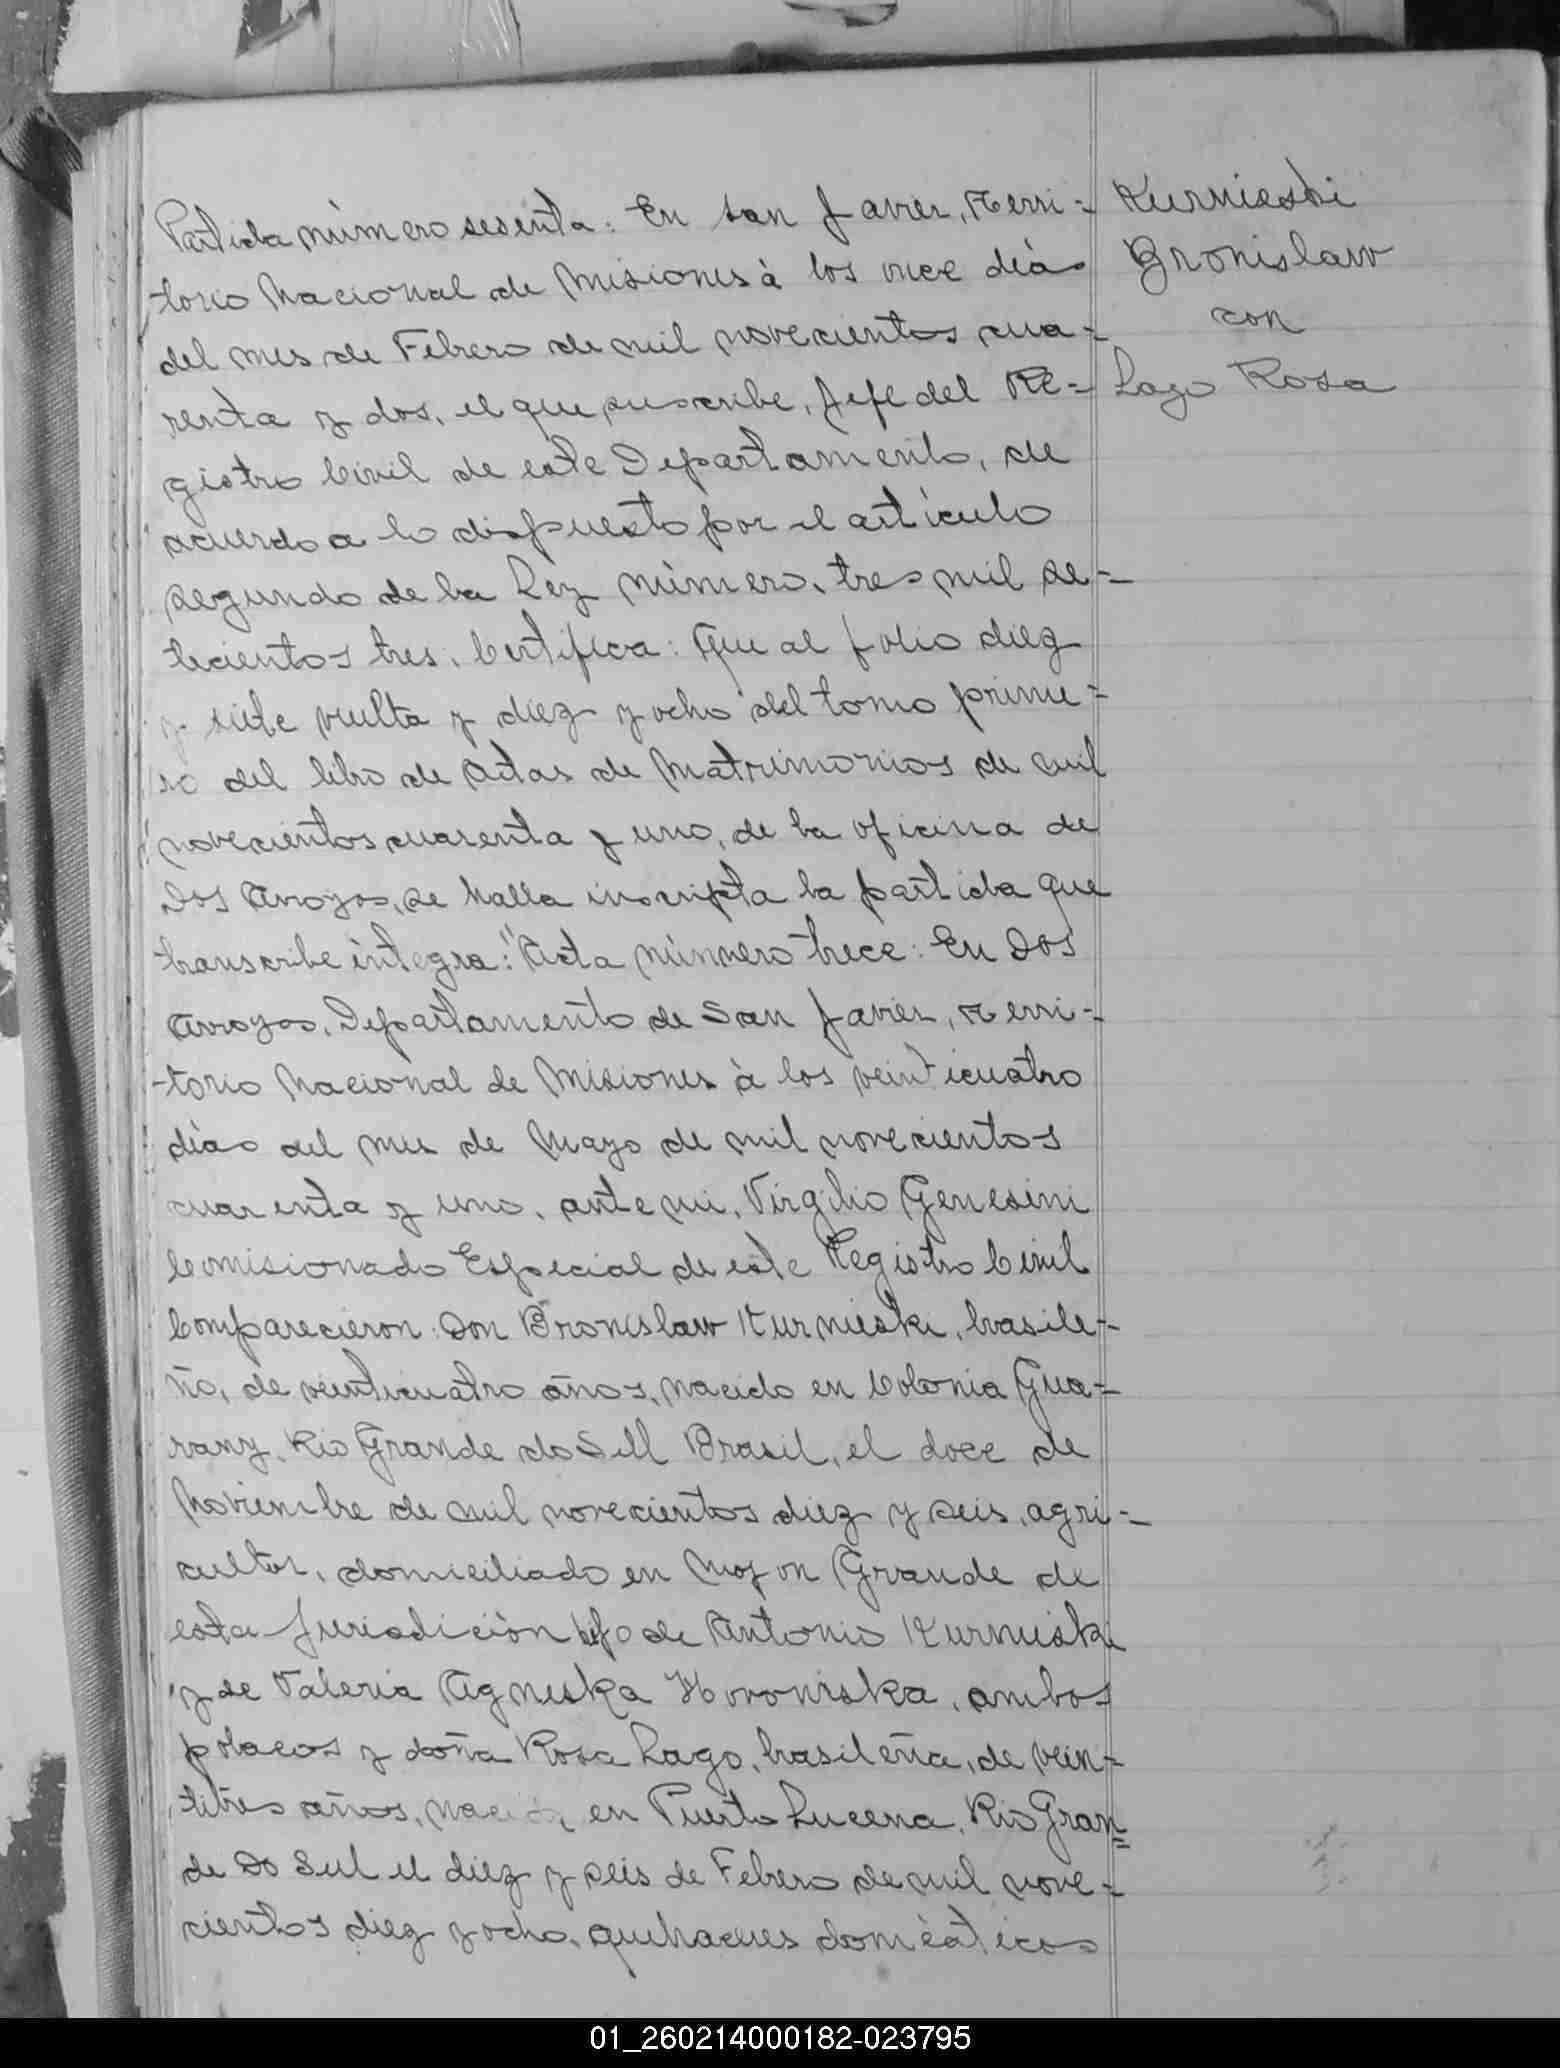 Partida número sesenta: En San Javier, Terri=
torio Nacional de Misiones à los once días
del mes de Febrero de mil novecientos cua=
renta y dos, el que suscribe, Jefe del Re=
gistro Civil de este Departamento, de
acuerdo a lo dispuesto por el artículo
segundo de la Ley número, tres mil se=
tecientos tres. Certifica: Que al folio diez
y siete vuelta y diez y ocho del tomo prime=
ro del libro de Actas de Matrimonios de mil
novecientos cuarenta y uno, de la oficina de
Dos Arroyos, se halla inscripta la partida que
transcribe íntegra: "Acta número trece: En Dos
Arroyos, Departamento de San Javier, Terri=
-torio Nacional de Misiones à los veinticuatro
días del mes de Mayo de mil novecientos
cuarenta y uno, ante mi, Virgilio Genesini
Comisionado Especial de este Registro Civil
Comparecieron: Don Bronislaw Kurnieski, brasile=
ño, de veinticuatro años, nacido en Colonia Gua=
rany, Rio Grande do Sul Brasil, el doce de
Noviembre de mil novecientos diez y seis, agri=
cultor, domiciliado en Mojon Grande de
esta Jurisdición hijo de Antonio Kurnieski
y de Valeria Agneska Horoniska, ambos
polacos y doña Rosa Lago, brasileña, de vein=
titres años, nacida en Puerto Lucena, Rio Gran=
de Do Sul el diez y seis de Febrero de mil nove=
cientos diez y ocho, quehaceres domèsticos
Kurnieski
Bronislaw
con
Lago Rosa
01_260214000182-023795